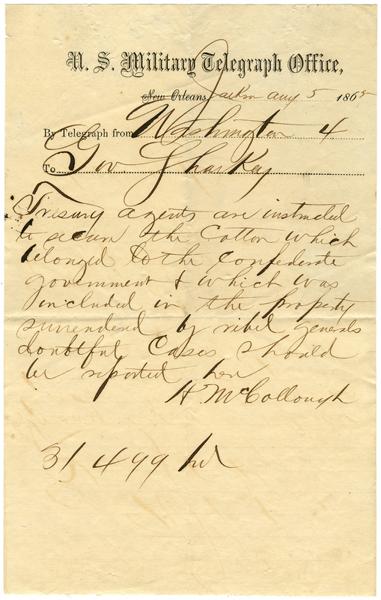 U. S. Military Telegraph Office,
New Orleans, Jackson Aug 5 1865
By Telegraph from Washington 4
To Gov Sharkey
Treasury agents are instructed
to secure the Cotton which
belonged to the Confederate
government & which was
included in the property
surrendered by rebel generals
doubtful Cases should
be reported here
H McCollough
31 499